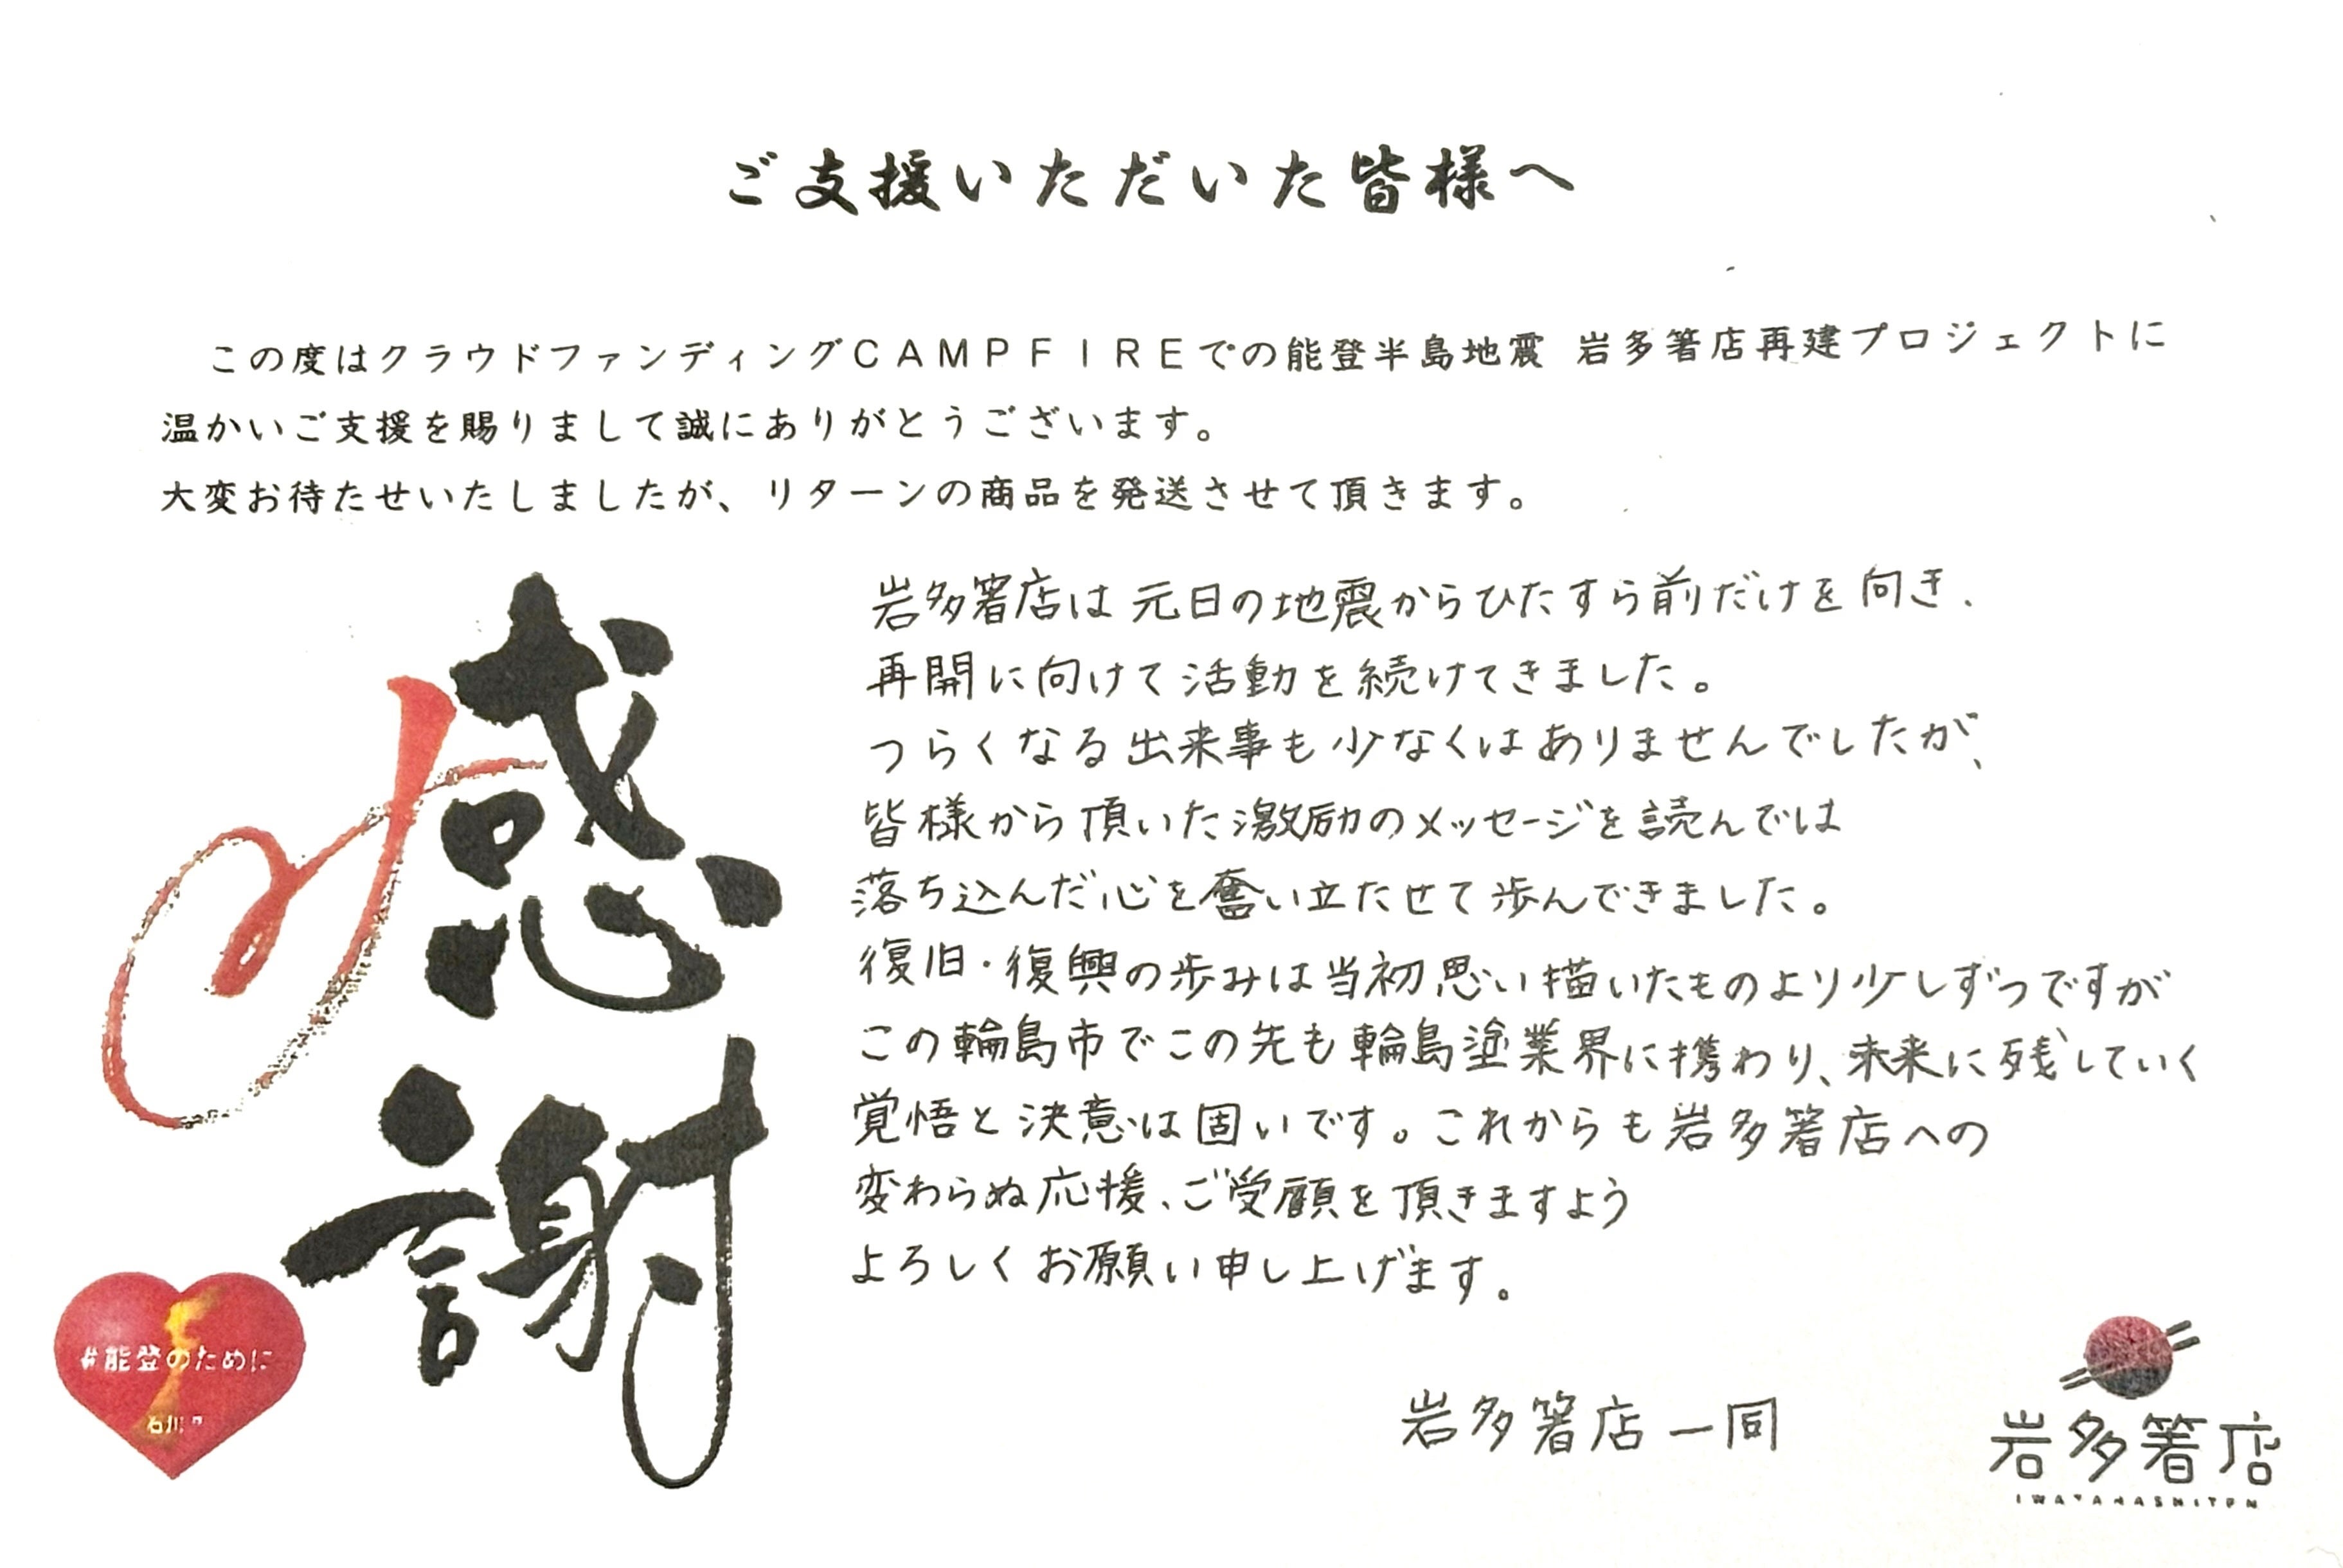 ご支援いただいた皆様へ
この度はクラウドファンディングCAMPFIREでの能登半島地震 岩多箸店再建プロジェクトに
温かいご支援を賜りまして誠にありがとうございます。
大変お待たせいたしましたが、リターンの商品を発送させて頂きます。
感謝
岩多箸店は元日の地震からひたすら前だけを向き、
再開に向けて活動を続けてきました。
つらくなる出来事も少なくはありませんでしたが、
皆様から頂いた激励のメッセージを読んでは
落ち込んだ心を奮い立たせて歩んできました。
復旧・復興の歩みは当初思い描いたものより少しずつですが
この輪島市でこの先も輪島塗業界に携わり、未来に残していく
覚悟と決意は固いです。これからも岩多箸店への
変わらぬ応援、ご愛顧を頂きますよう
よろしくお願い申し上げます。
#能登のために
石川
岩多箸店一同
岩多箸店
IWATAHASHITEN